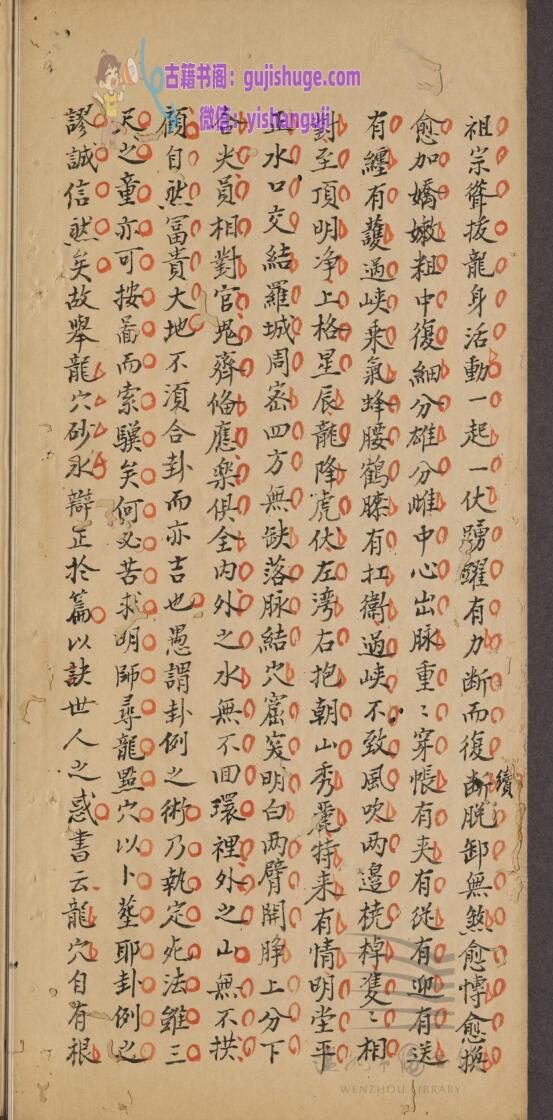 古籍书阁：gujishuge.com
微信：yishanguji
祖宗聳拔龍身活動一起一伏踴躍有力断而復断脱卸無煞愈愽愈换
續
愈加嬌嫰粗中復細分雄分雌中心出脉重〻穿帳有夹有従有迎有送
有纏有護過峡乗氣蜂腰鶴膝有扛衛過峡不致風吹两邉橈棹隻〻相
對至頂明净上格星辰龍降虎伏左湾右抱朝山秀麗特来有情明堂平
正水口交結羅城周宻四方無缺落脉結穴窟突明白两臂開睁上分下
合尖員相對官鬼齊俻應楽俱全内外之水無不囬環裡外之山無不拱
顧自然冨貴大地不湏合卦而亦吉也愚謂卦例之術乃執定死法雖三
尺之童亦可按啚而索驥矣何必苦求明師尋龍㸃穴以卜塟耶卦例之
謬誠信然矣故舉龍穴砂水辯正於篇以訣世人之惑書云龍穴自有根
WENZHOU LIBRARY